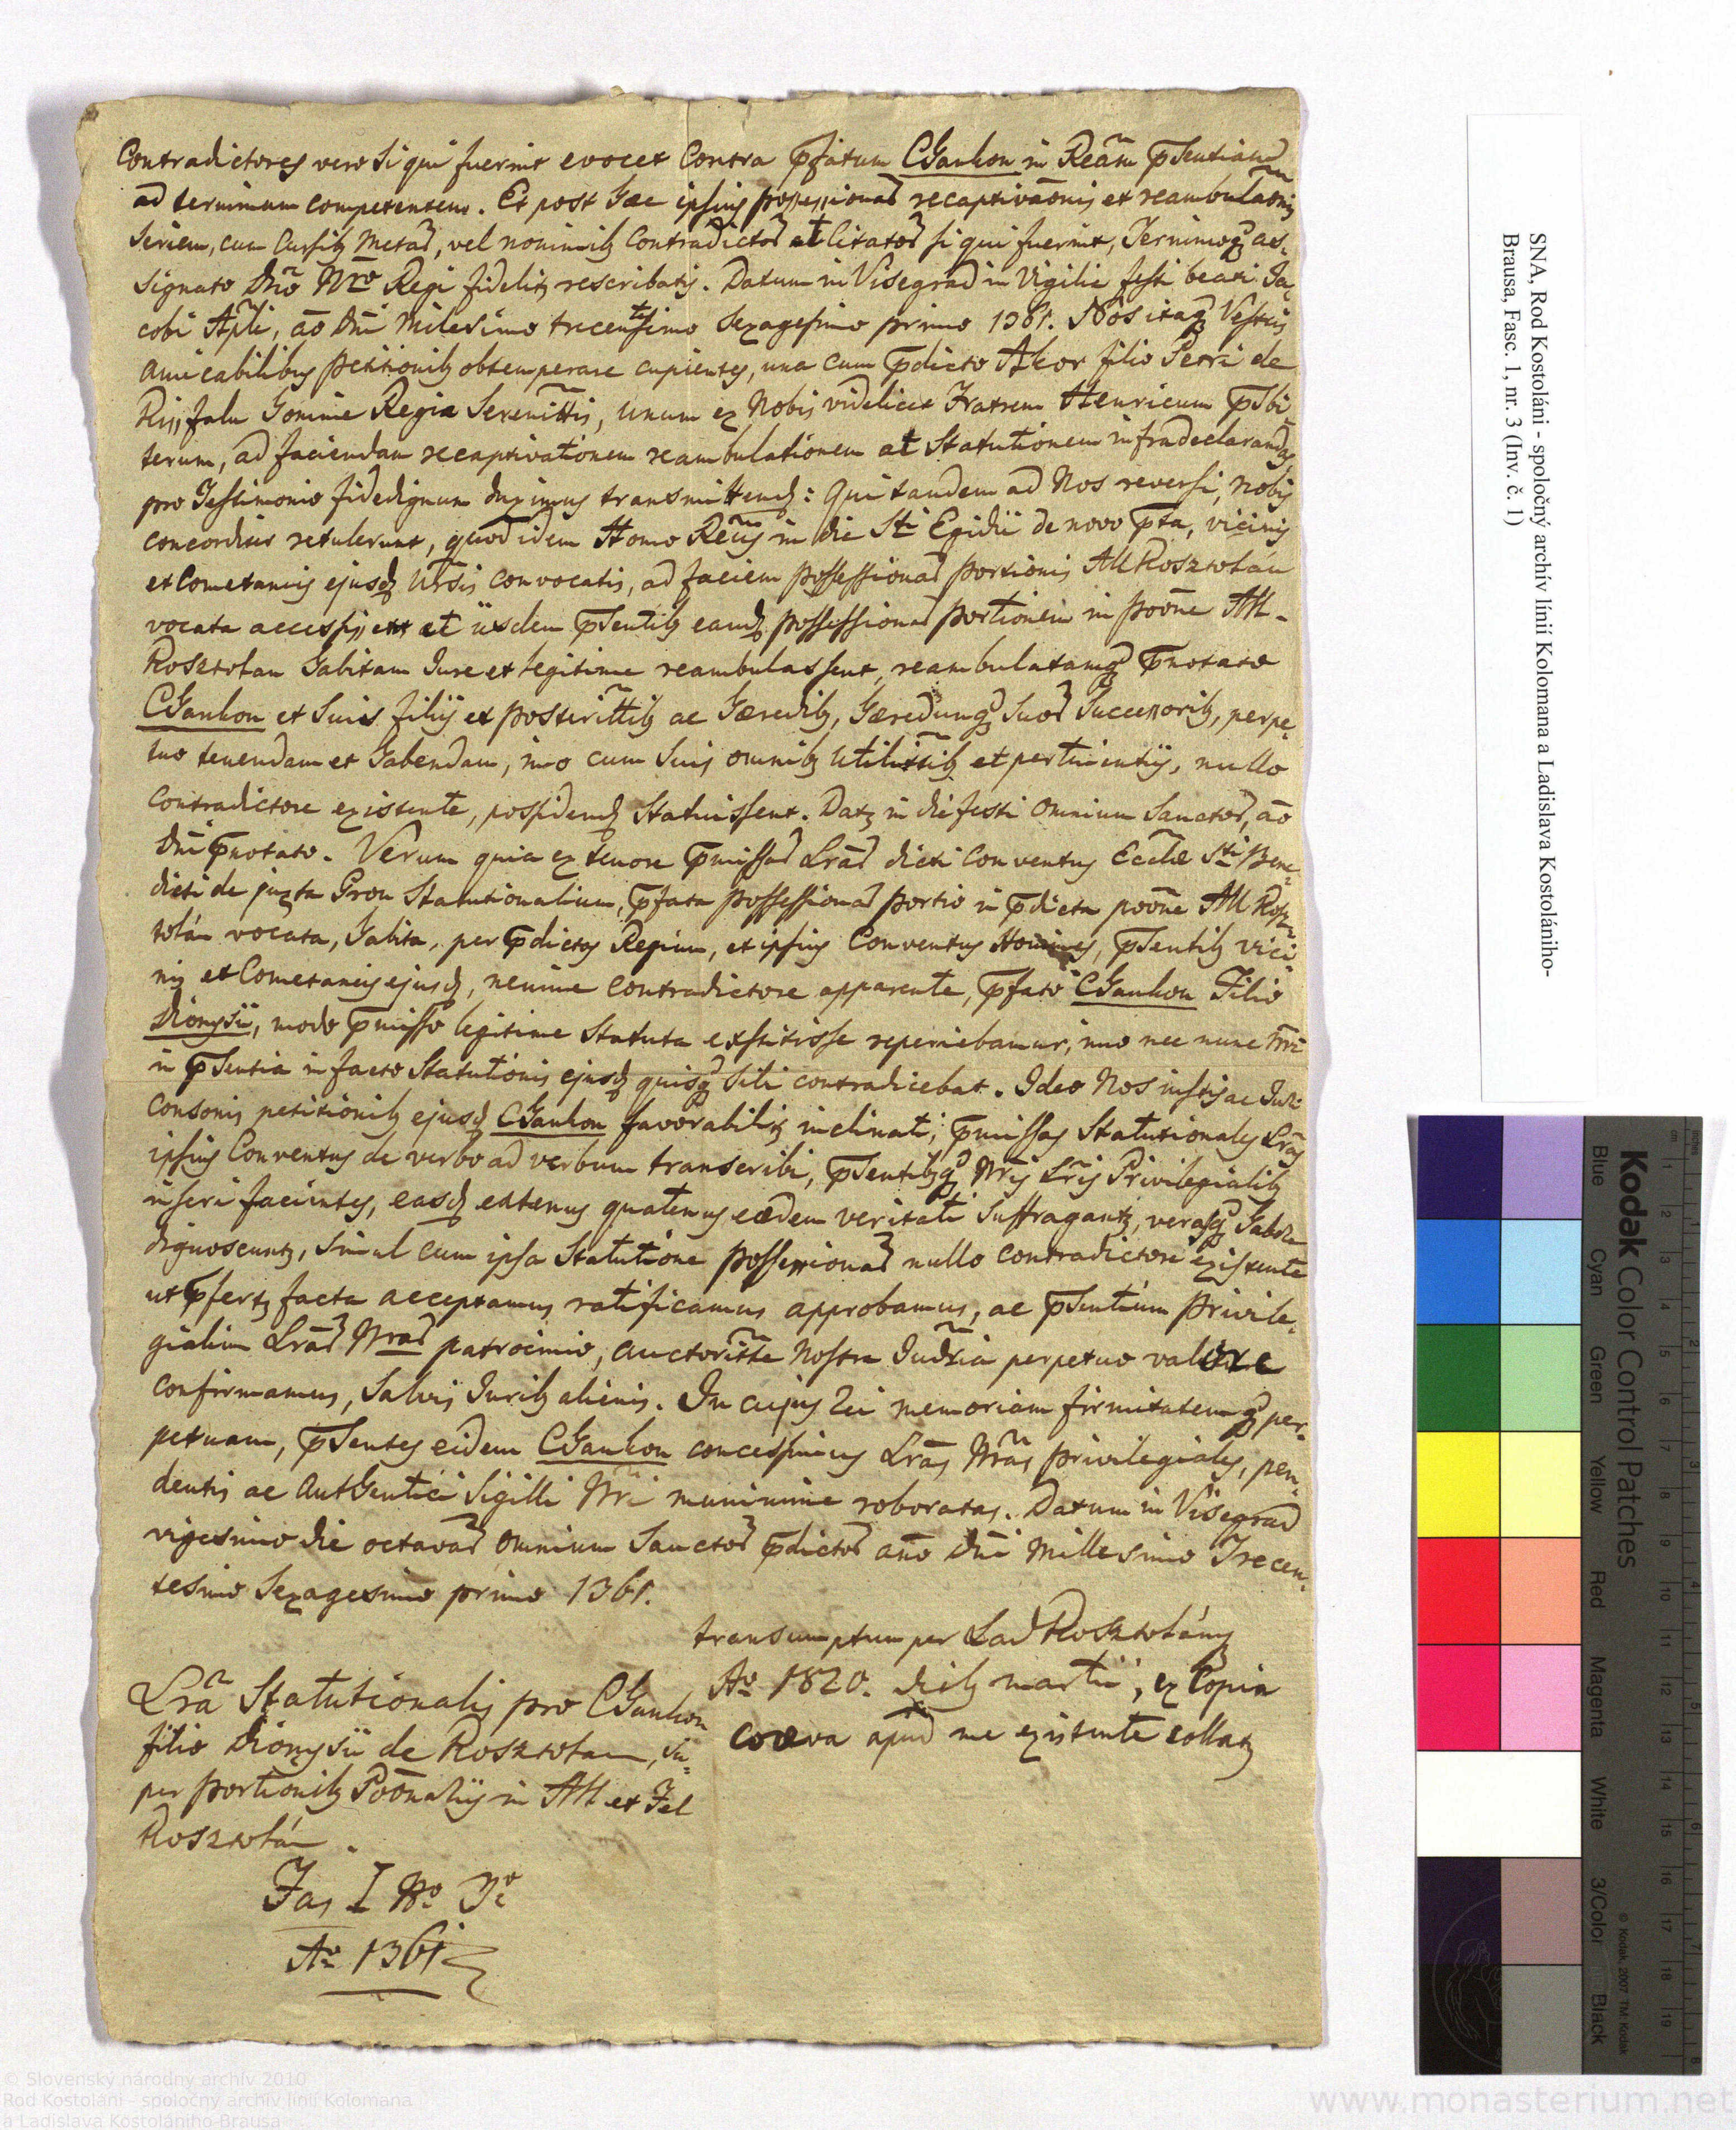 Contradictores vero si qui fuerint evocet Contra p̄fatum CSankon in Reām p̄sentiam
ad terminum competentem. Et post hæc ipsius possessionar recaptivāonis et reambulaōnis
Seriem, cum Cursibq Metar, vel nominibq Contradictor et Citator si qui fuerint, Terminoqz as-
signato Dn̄o Nr̄o Regi fideliter rescribatis. Datum in Visegrad in Vigilia festi beati Ja-
cobi Apl̄i, āo Dn̄i Milesimo trecentesimo Sexagesimo primo 1361. Nos itaqz Vestris
amicabilibus petitionibq obtemperare cupientes, una cum p̄dicto Akor filio Petri de
Kissfalu homine Regiæ Sereniītis, unum ex Nobis videlicet Fratrem Henricum p̄sbi-
terum, ad faciendam recaptivationem reambulationem et Statutionem infradeclarandas
pro Testimonio fidedignum duximus transmittend: Qui tandem ad Nos reversi, nobis
concorditer retulerunt, quod idem Homo Reg̃ius in die Sti Egidii de novo p̄ta, vicinis
et Cometaneis ejusd Ur̄sis convocatis, ad faciem possessionar portionis All Kosztolán
vocata accessissent et iisdem p̄sentibq eand possessionar portionem in poōne All-
Kosztolan habitam Jure et legitime reambulassent, reambulatamqz p̄notato
CSankon et Suis filiis et posteritītibq ac Hæredibq, Hæredumqz Suor Successoribq, perpe-
tuo tenendam et habendam, imo cum Suis omnibq Utilitītibq et pertinentiis, nullo
Contradictore existente, possidend Statuissent. Datz in die festi Omnium Sanctor, āo
Dn̄i p̄notato. Verum quia ex tenore p̄missar Lrār dicti Conventus Eccl̄æ Sti Bene-
dicti de juxta Gron Statutionalium, p̄fata possessionar portio in p̄dicta poōne All Kosz-
tolán vocata, habita, per p̄dictos Regium, et ipsius Conventus Homines, p̄sentibq vici-
nis et Cometaneis ejusd, nemine contradictore apparente, p̄fato CSankon Filio
Dionysii, modo p̄misso legitime Statuta exstitisse reperiebamur, imo nec nunc nr̄i
in p̄sentia in facto Statutionis ejusd quisqz Sibi contradicebat. Ideo Nos justis ac Juri
consonis petitionibq ejusd CSankon favorabilit inclinati, p̄missas Statutionales Lrās
ipsius Conventus de verbo ad verbum transcribi, p̄sentibqz Nr̄is Lrīs Privilegialibq
inseri facientes, easd eatenus quatenus eædem veritati Suffragantz, verasqz habere
dignoscuntz, Simul cum ipsa Statutione possessionar nullo contradictore existente
ut p̄fertz facta acceptamus ratificamus approbamus, ac p̄sentium privile-
gialium Lrār Nrār patrocinio, auctoritīte Nostra Judr̄ia perpetuo valere
confirmamus, Salvis Juribq alienis. In cujus Rei memoriam firmitatemqz per-
petuam, p̄sentes eidem CSankon concessimus Lrās Nrās privilegiales, pen-
dentis ac autHentici Sigilli Nr̄i munimine roboratas. Datum in Visegrad
vigesimo die octavar Omnium Sanctor p̄dictor año Dn̄i Millesimo Trecen-
tesimo Sexagesimo primo 1361.
transumptum per Lad Kosztolány
Ao 1820. dieb martii, ex Copia
coæva apud me existente collatz
Lrā Statutionalis pro CSankon
filio Dionysii de Kosztolan, Su-
per portionibq Poōnaliis in All et Fel
Kosztolán.
Fas I No
Ao 1361
SNA, Rod Kostoláni - spoločný archív línií Kolomana a Ladislava Kostolániho-
Brausa, Fasc. 1, nr. 3 (Inv. č. 1)
Kodak Color Control Patches
Blue Cyan Green Yellow Red Magenta White 3/Color Black
© Kodak, 2007 TM: Kodak
cm 1 2 3 4 5 6 7 8 9 10 11 12 13 14 15 16 17 18 19
inches 1 2 3 4 5 6 7 8
© Slovenský národný archív 2010
Rod Kostoláni - spoločný archív línií Kolomana
a Ladislava Kostolániho-Brausa
www.monasterium.net